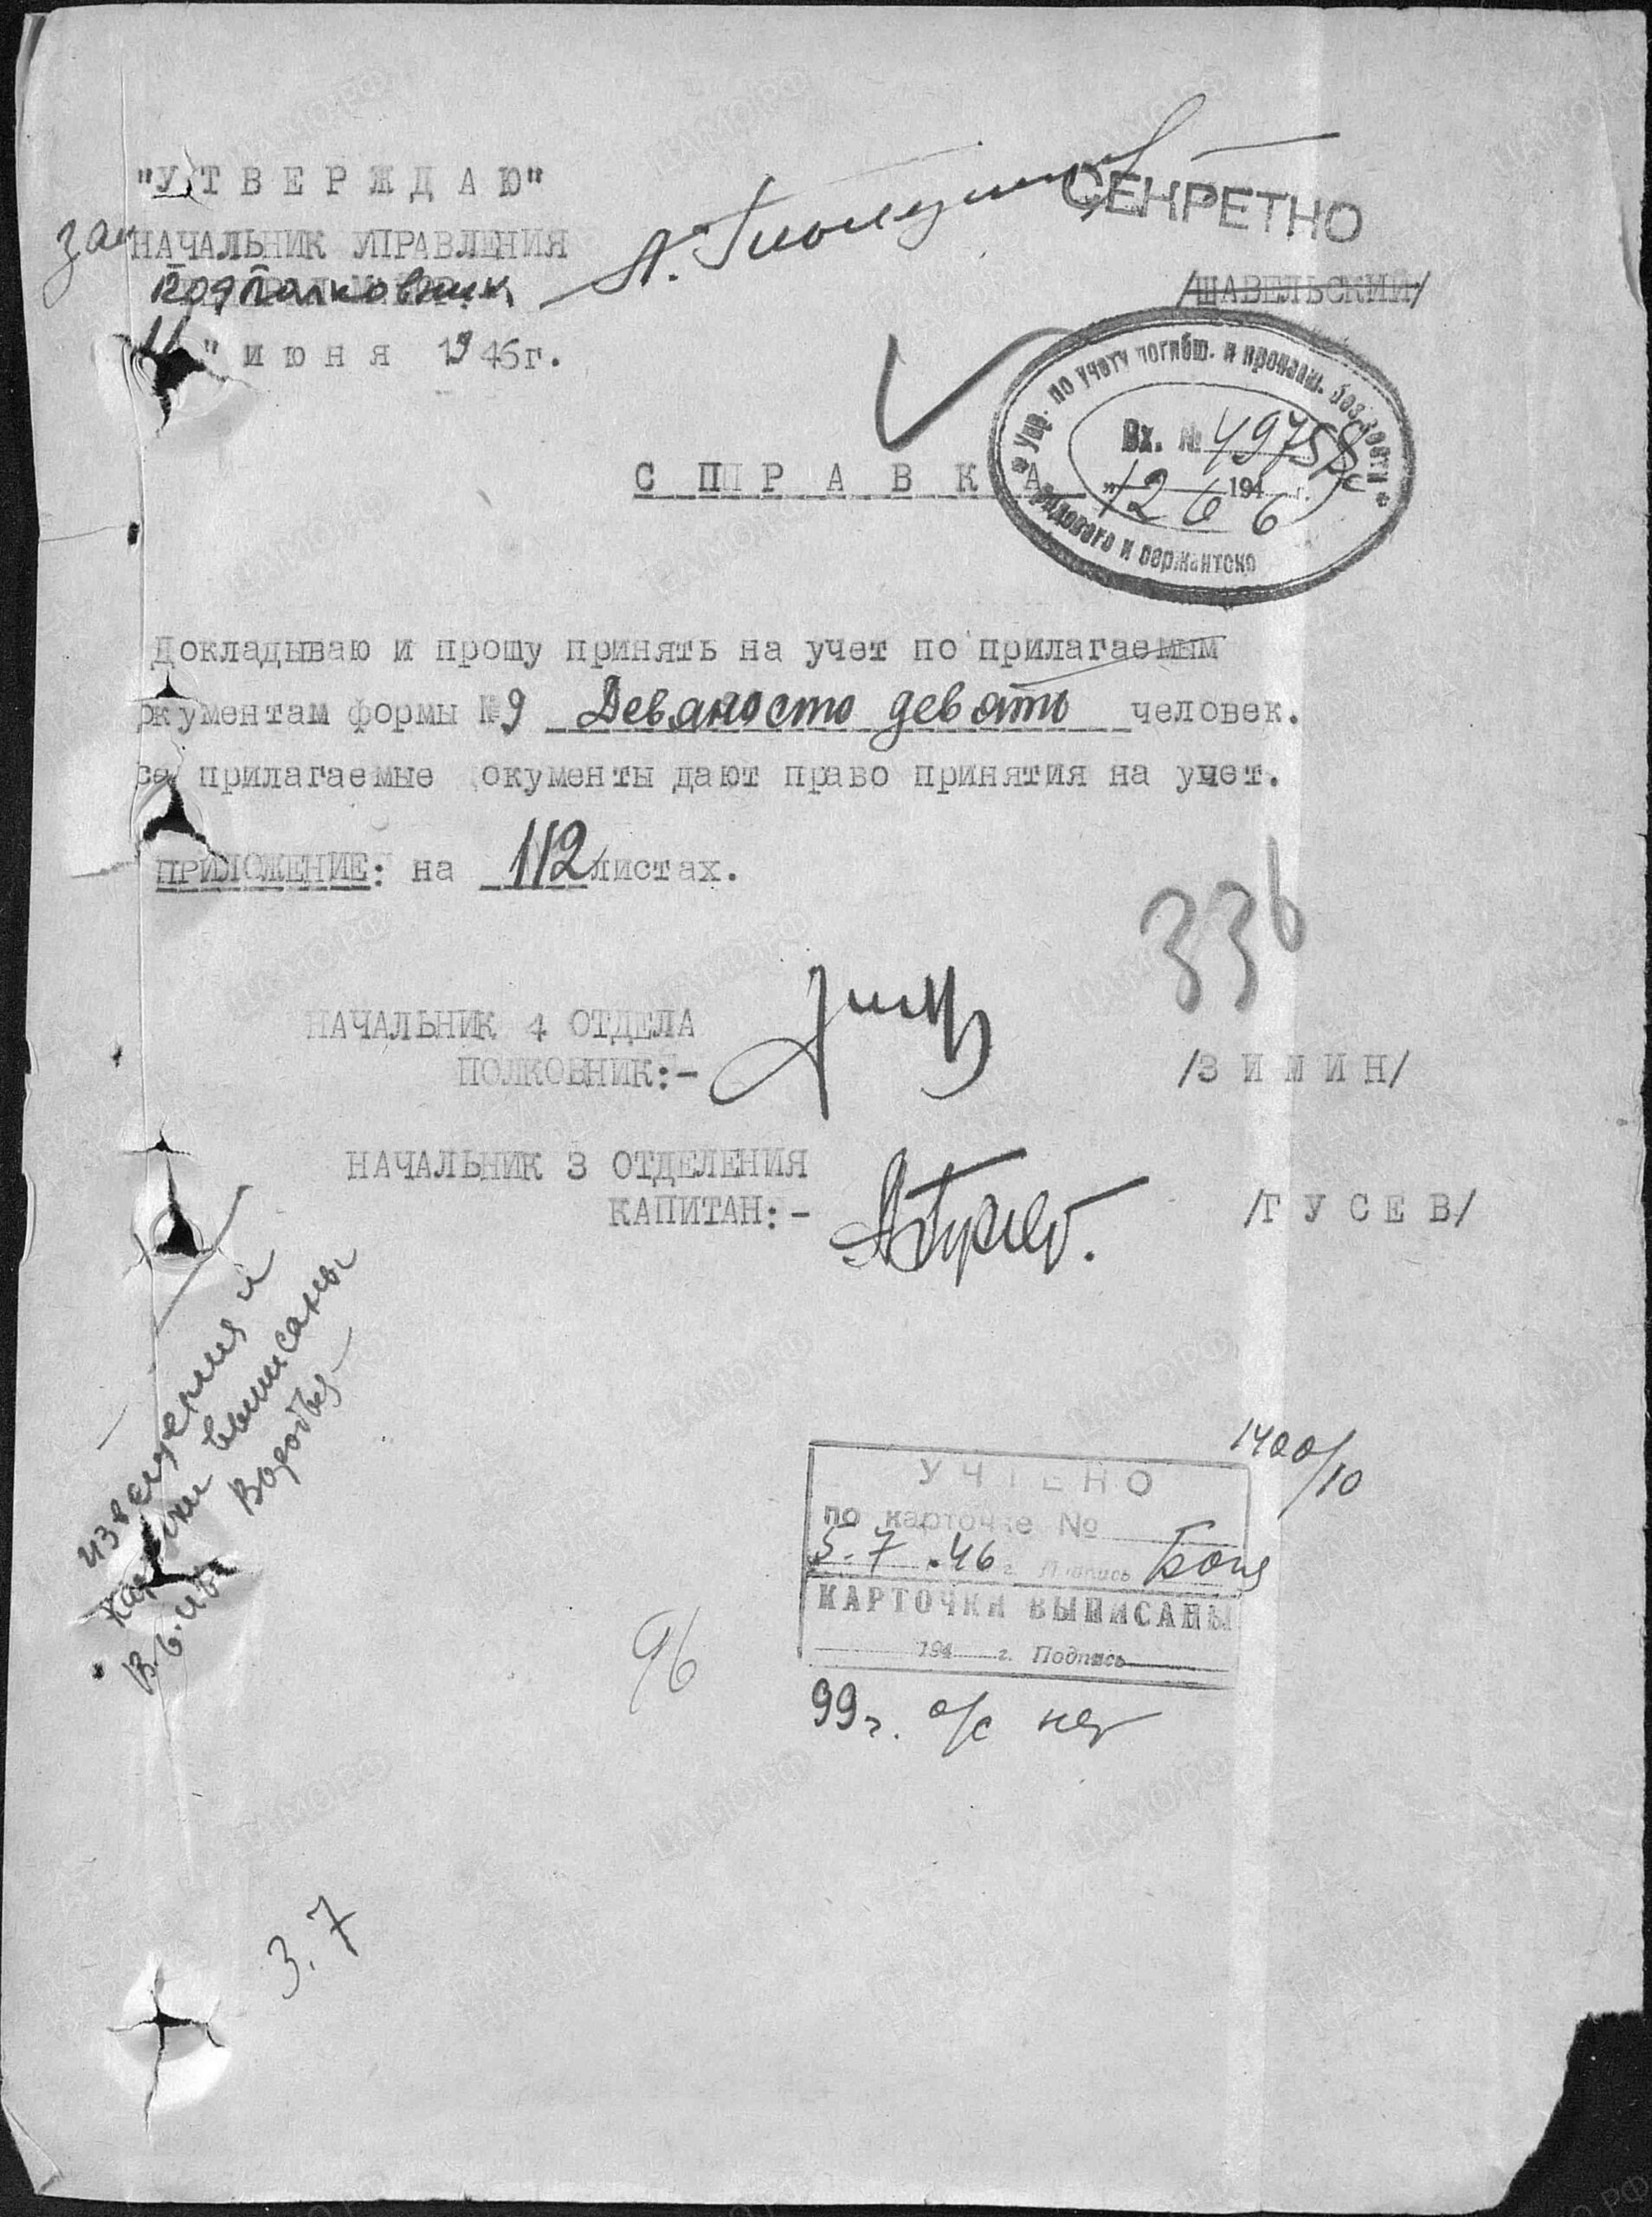 "УТВЕРЖДАЮ"
СЕКРЕТНО
зам НАЧАЛЬНИК УПРАВЛЕНИЯ
подполковник
/ШАВЕЛЬСКИЙ/
11 " июня 1946г.
Упр. по учету погибш. и пропавш. без вести
Вх. № 49758с
"12 6 1946 г.
рядового и сержантско
СПРАВКА
Докладываю и прошу принять на учет по прилагаемым
окументам формы №9 Девяносто девять человек.
се прилагаемые окументы дают право принятия на учет.
ПРИЛОЖЕНИЕ: на 112 листах.
336
НАЧАЛЬНИК 4 ОТДЕЛА
ПОЛКОВНИК:- /ЗИМИН/
НАЧАЛЬНИК 3 ОТДЕЛЕНИЯ
КАПИТАН:- /ГУСЕВ/
извещения и
карточки выписаны
1400/10
УЧТЕНО
по карточке №
5.7.46 г. Подпись
КАРТОЧКИ ВЫПИСАНЫ
194 г. Подпись
96
99г. о/с нет
3.7
ЦАМО.РФ